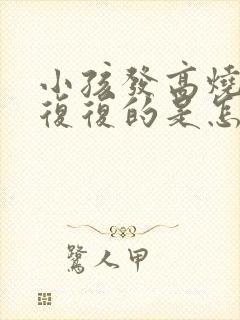 小孩發高燒
復復的是怎
鷺人甲